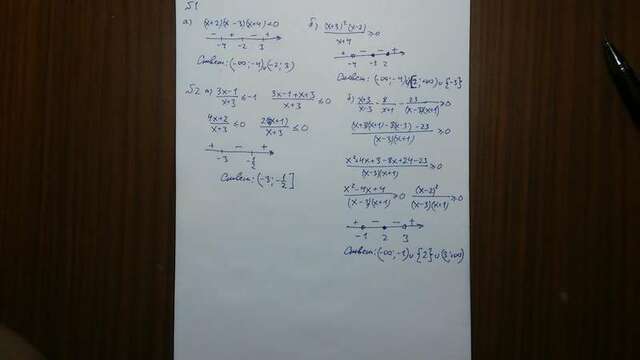 №1
а) (x+2)(x-3)(x+4)<0
- + - +
-4 -2 3
Ответ: (-∞; -4)∪(-2; 3)
б) (x+3)²(x-2)/(x+4) ≥ 0
-4 -3 2
Ответ: (-∞; -4)∪[2; +∞)∪{-3}
№2 а) (3x-1)/(x+3) ≤ -1 (3x-1+x+3)/(x+3) ≤ 0
(4x+2)/(x+3) ≤ 0 2(2x+1)/(x+3) ≤ 0
+ - +
-3 -½
Ответ: (-3; -½]
б) (x+3)/(x-3) - 8/(x+1) - 23/((x-3)(x+1)) ≥ 0
((x+3)(x+1)-8(x-3)-23)/((x-3)(x+1)) ≥ 0
(x²+4x+3-8x+24-23)/((x-3)(x+1)) ≥ 0
(x²-4x+4)/((x-3)(x+1)) ≥ 0 (x-2)²/((x-3)(x+1)) ≥ 0
+ - - +
-1 2 3
Ответ: (-∞; -1)∪{2}∪(3; +∞)